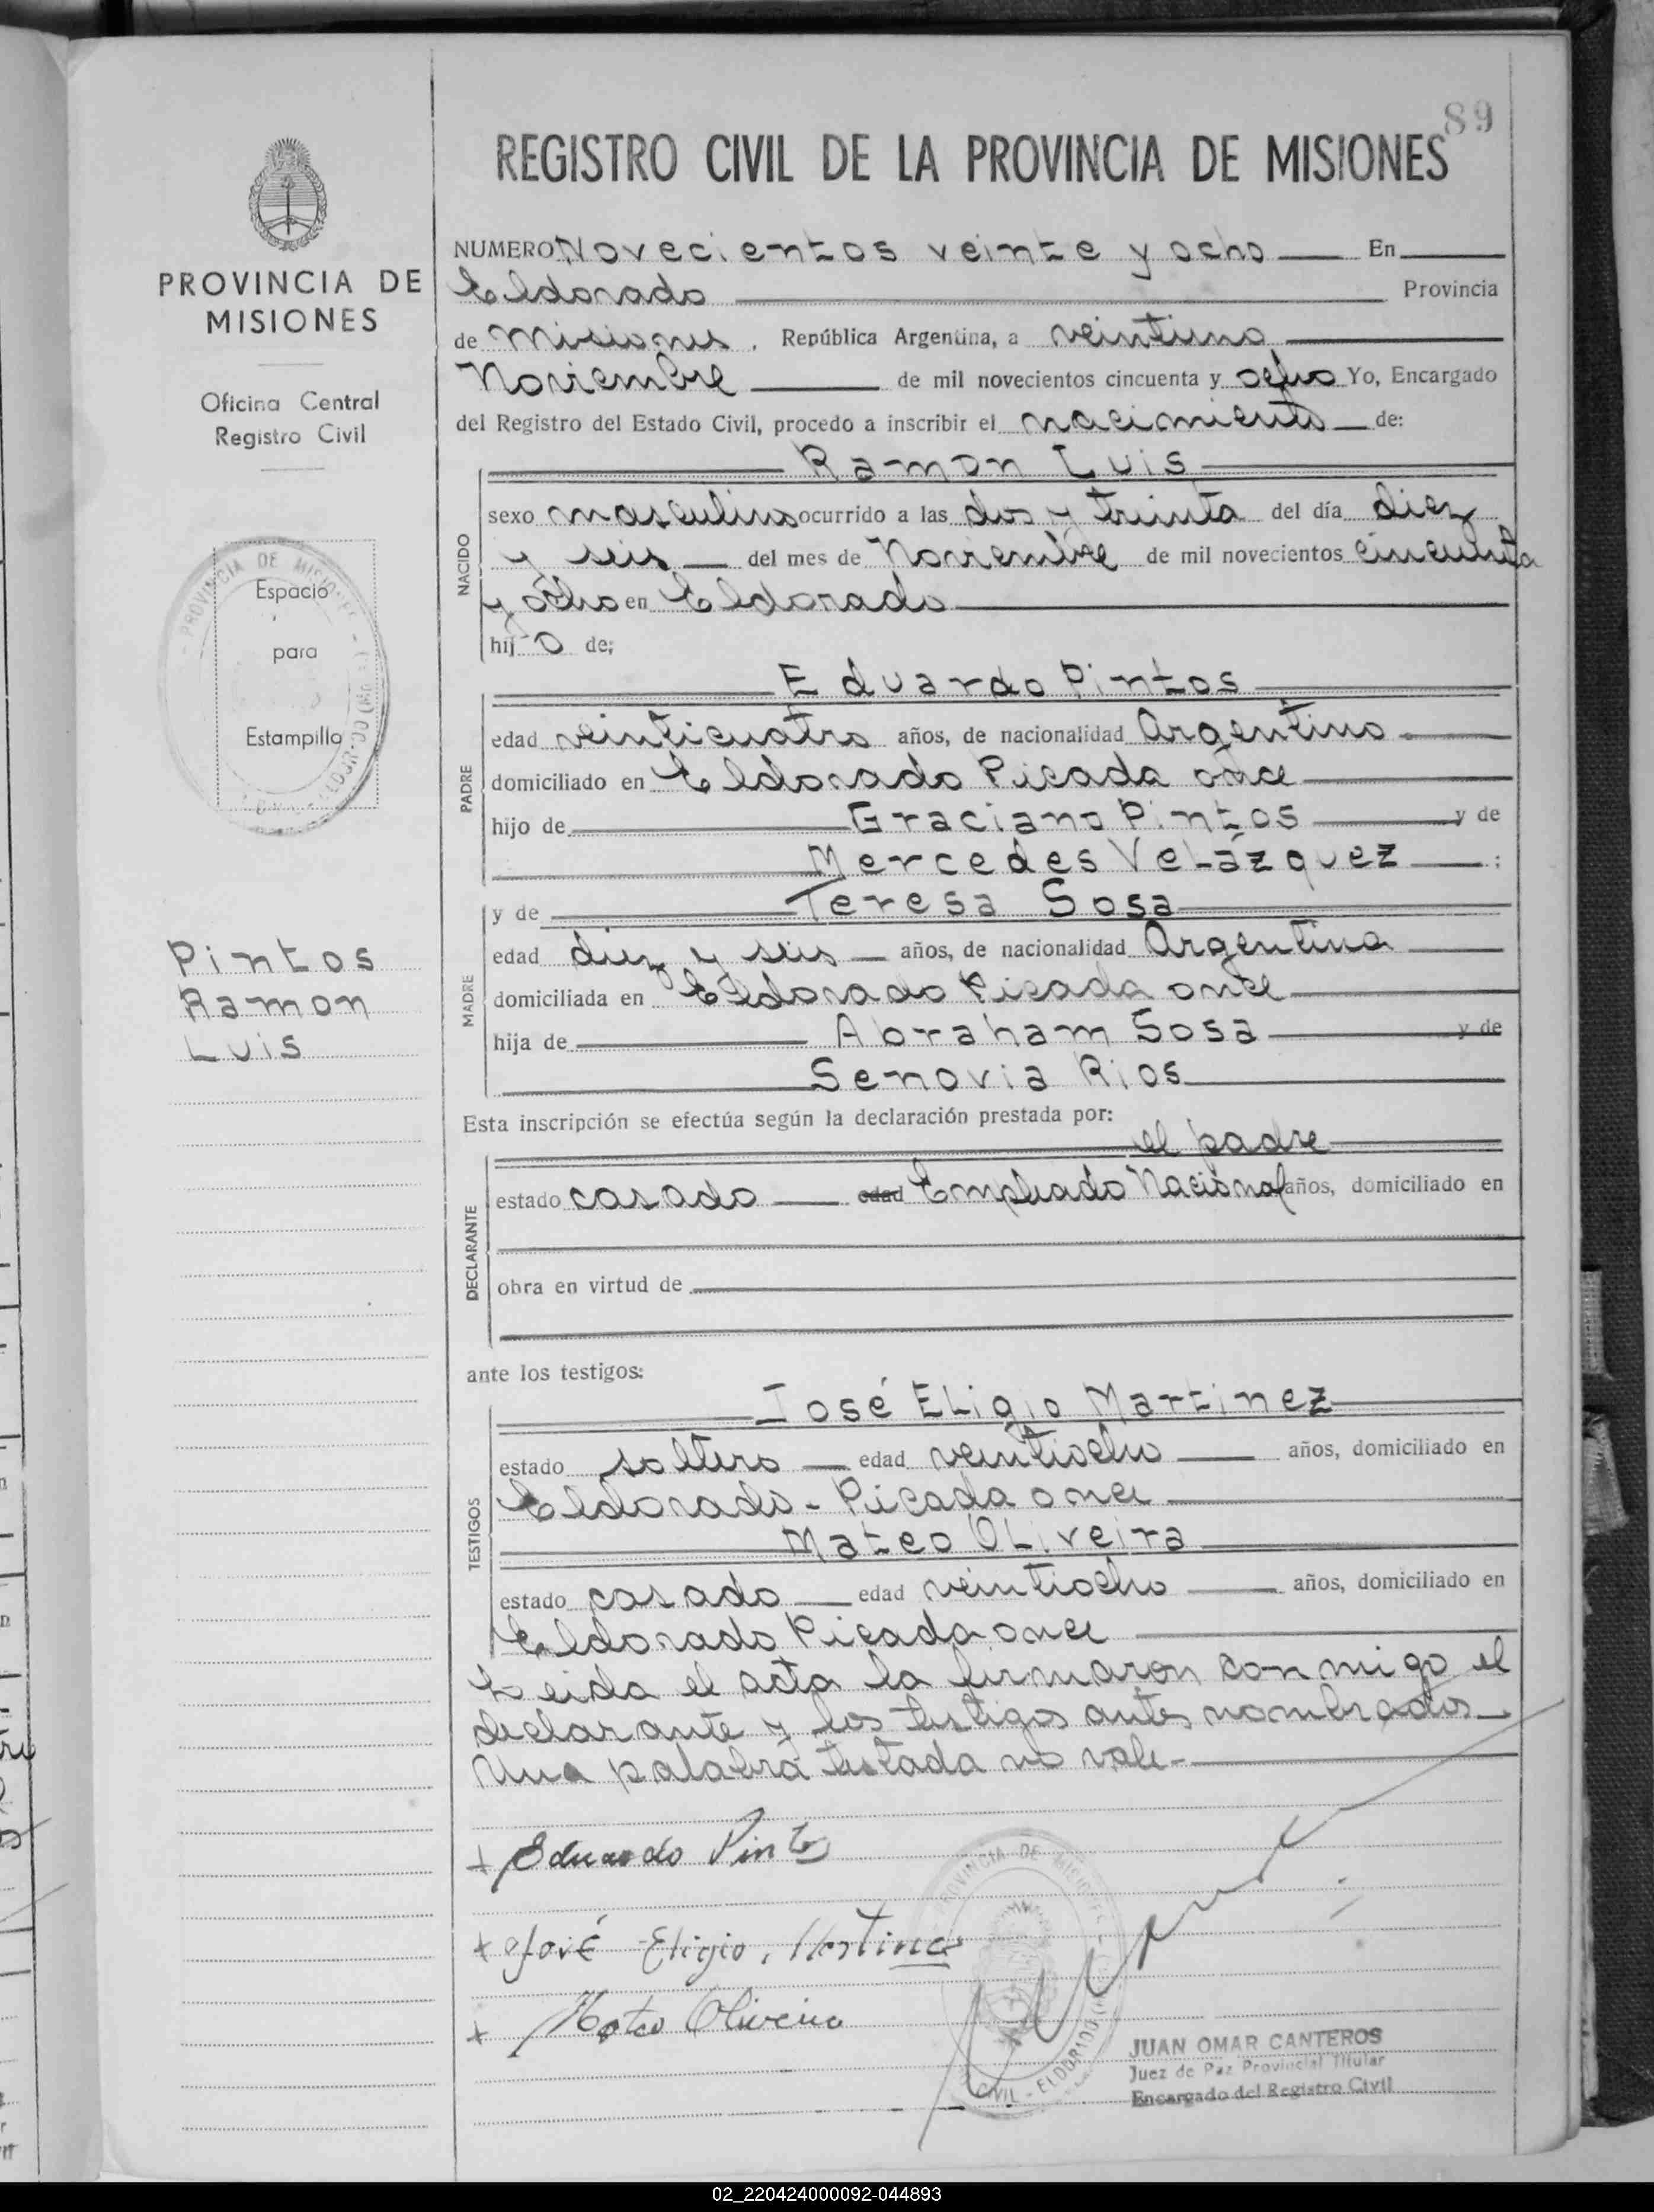 89
REGISTRO CIVIL DE LA PROVINCIA DE MISIONES
PROVINCIA DE
MISIONES
Oficina Central
Registro Civil
PROVINCIA DE MISIONES
Espacio
para
Estampillo
Pintos
Ramon
Luis
NUMERO Novecientos veinte y ocho En
Eldorado Provincia
de Misiones, República Argentina, a veintiuno
Noviembre de mil novecientos cincuenta y ocho Yo, Encargado
del Registro del Estado Civil, procedo a inscribir el nacimiento de:
Ramon Luis
NACIDO
sexo masculino ocurrido a las dos y treinta del día diez
y seis del mes de Noviembre de mil novecientos cincuenta
y ocho en Eldorado
hijo de;
Eduardo Pintos
PADRE
edad veinticuatro años, de nacionalidad Argentino
domiciliado en Eldorado Picada once
hijo de Graciano Pintos y de
Mercedes Velázquez ;
y de Teresa Sosa
MADRE
edad diez y seis años, de nacionalidad Argentina
domiciliada en Eldorado Picada once
hija de Abraham Sosa y de
Senovia Rios
Esta inscripción se efectúa según la declaración prestada por:
el padre
DECLARANTE
estado casado edad Empleado Nacional años, domiciliado en
obra en virtud de
ante los testigos:
José Eligio Martinez
TESTIGOS
estado soltero edad veintiocho años, domiciliado en
Eldorado - Picada once
Mateo Oliveira
estado casado edad veintiocho años, domiciliado en
Eldorado Picada once
Leida el acta la firmaron conmigo el
declarante y los testigos antes nombrados
Una palabra testada no vale.-
+ Eduardo Pintos
+ José Eligio Martinez
+ Mateo Oliveira
PROVINCIA DE MISIONES
CIVIL - ELDORADO
JUAN OMAR CANTEROS
Juez de Paz Provincial Titular
Encargado del Registro Civil
02_220424000092-044893